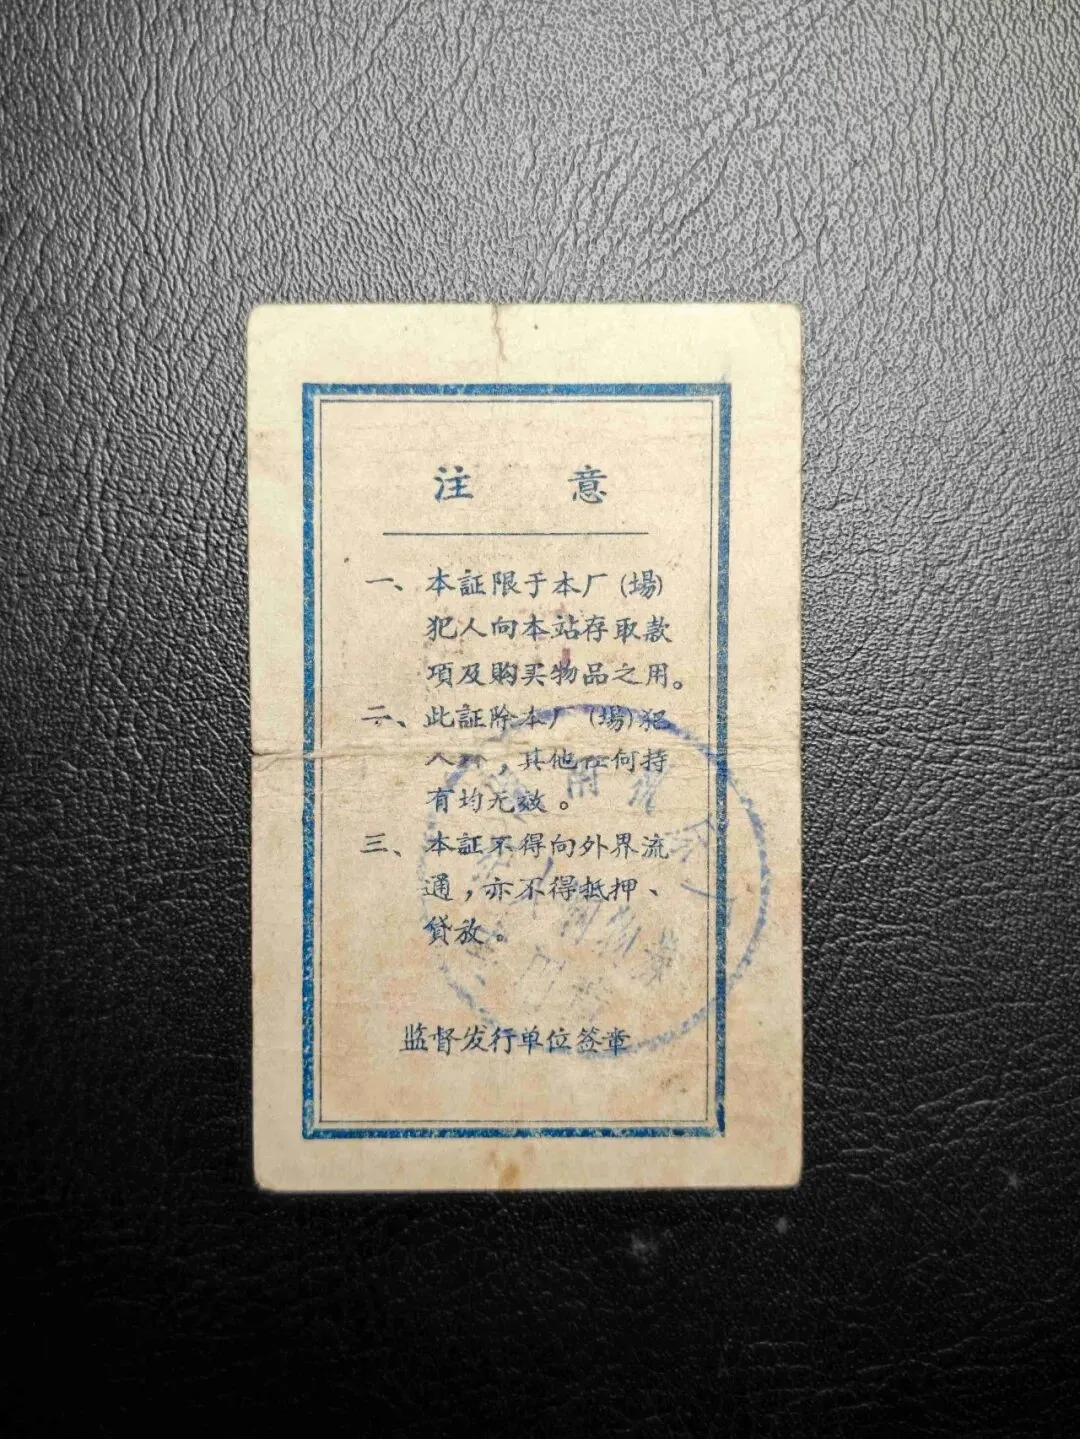 注 意
一、本証限于本厂(場)
犯人向本站存取款
項及购买物品之用。
二、此証除本厂(場)犯
人外,其他任何持
有均无效。
三、本証不得向外界流
通,亦不得抵押、
貸放。
监督发行单位签章